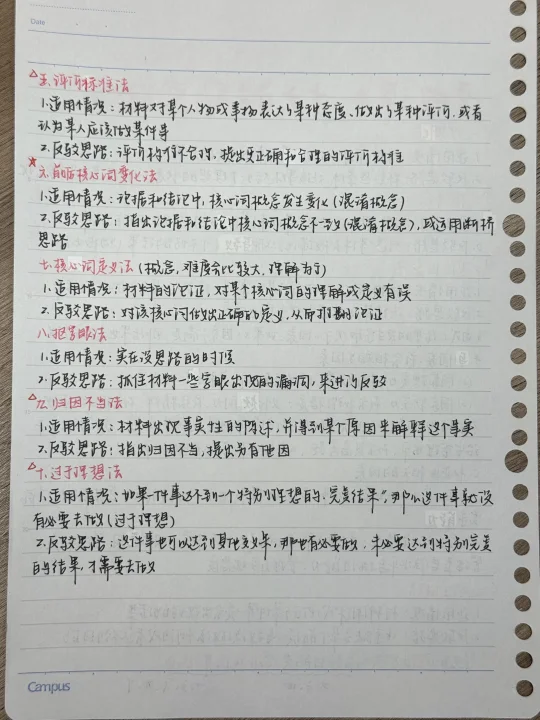 Date
△五.评价标准法
1.适用情况:材料对某个人物或事物表达了某种态度、做出了某种评价,或者
认为某人应该做某件事
2.反驳思路:评价标准不合理,提出更正确和合理的评价标准
★六.前后核心词变化法
1.适用情况:论据和结论中,核心词概念发生变化(混淆概念)
2.反驳思路:指出论据和结论中核心词概念不一致(混淆概念),或运用断桥
思路
七.核心词定义法(概念,难度会比较大,理解为了)
1.适用情况:材料的论证,对某个核心词的理解或定义有误
2.反驳思路:对该核心词做出正确的定义,从而推翻论证
八.抠字眼法
1.适用情况:实在没思路的时候
2.反驳思路:抓住材料一些字眼出现的漏洞,来进行反驳
△九.归因不当法
1.适用情况:材料出现事实性的陈述,并得到某个原因来解释这个事实
2.反驳思路:指出归因不当,提出另有他因
△十.过于理想法
1.适用情况:如果一件事达不到一个特别理想的、完美结果”,那么这件事就没
有必要去做(过于理想)
2.反驳思路:这件事也可以达到其他效果,那也有必要做,未必要达到特别完美
的结果,才需要去做
Campus